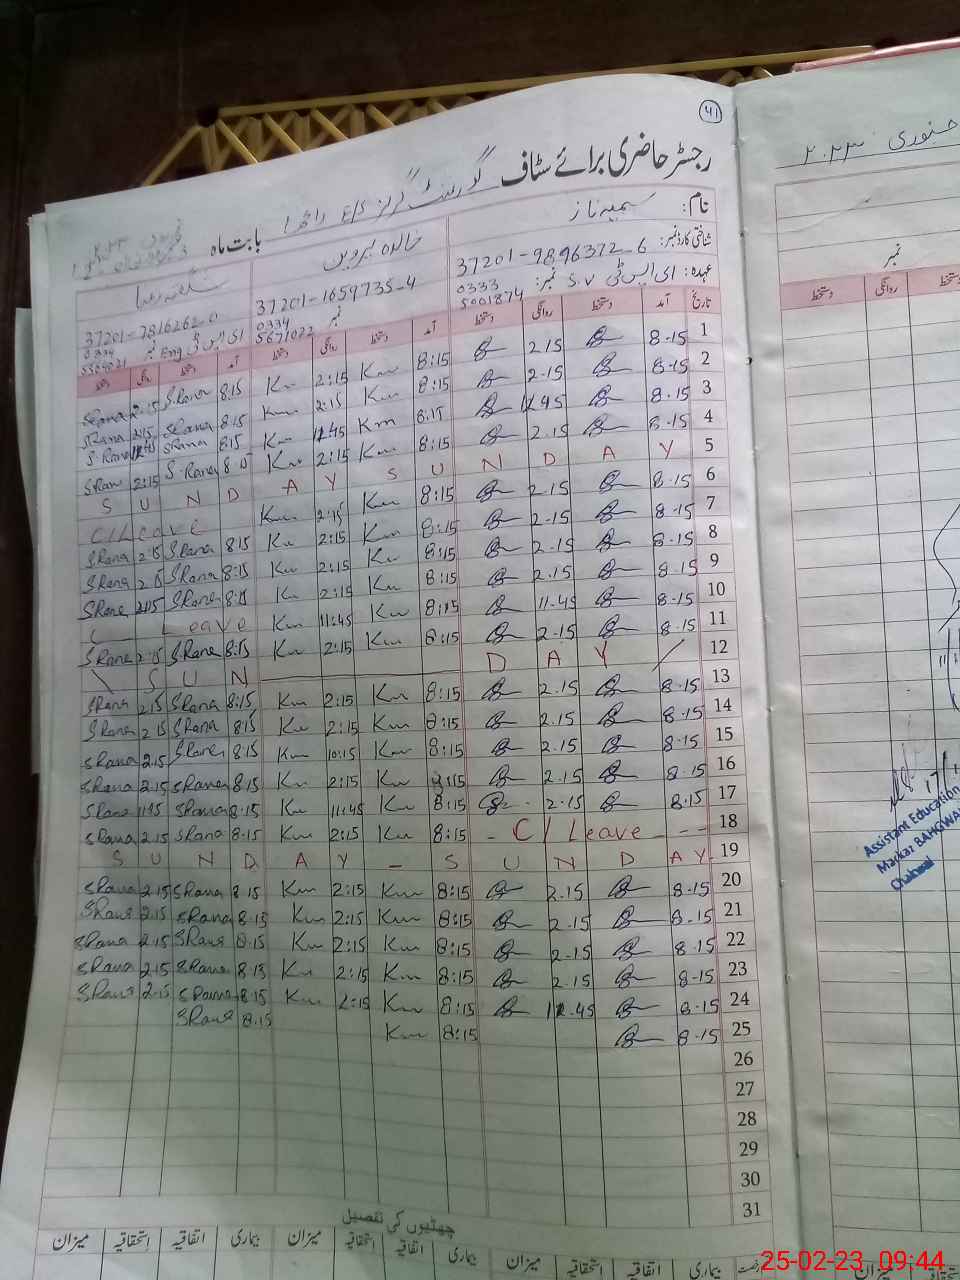 41
رجسٹر حاضری برائے سٹاف گورنمنٹ گرلز E/S
بابت ماہ
جنوری ۲۰۲۳
نام: سمیہ ناز
خالدہ پروین
شناختی کارڈ نمبر: 37201-9896372-6
37201-1659735-4
37201-7816262-0
عہدہ: ای ایس ٹی S.V نمبر: 0333 5001874
نمبر 0334 5671022
ای ایس ٹی Eng نمبر 0334
تاریخ آمد دستخط روانگی دستخط آمد دستخط روانگی دستخط آمد دستخط دستخط
نمبر
دستخط روانگی دستخط
SRana 2:15 SRana 8:15 Km 2:15 Km 8:15 2.15 8.15 1
SRana 2:15 SRana 8:15 Km 2:15 Km 8:15 2.15 8.15 2
SRana SRana 8:15 Km 12:45 Km 8:15 12.45 8.15 3
SRana 2:15 SRana Km 2:15 Km 8:15 2.15 8.15 4
S U N D A Y S U N D A Y 5
C/Leave Km 2:15 Km 8:15 2.15 8.15 6
SRana 2:15 SRana 8:15 Km Km 8:15 2.15 8.15 7
SRana SRana 8:15 Km 2:15 Km 8:15 2.15 8.15 8
SRana 2:15 SRana Km 2:15 Km 8:15 2.15 8.15 9
Leave Km 11:45 Km 8:15 11.45 8.15 10
SRana 2:15 SRana 8:15 Km 2:15 Km 8:15 2.15 8.15 11
S U N D A Y 12
SRana 2:15 SRana 8:15 Km 2:15 Km 8:15 2.15 8.15 13
SRana 2:15 SRana 8:15 Km 2:15 Km 8:15 2.15 8.15 14
SRana 2:15 SRana 8:15 Km 10:15 Km 8:15 2.15 8.15 15
SRana 2:15 SRana 8:15 Km 2:15 Km 8:15 2.15 8.15 16
SRana 11:45 SRana 8:15 Km 11:45 Km 8:15 2.15 8.15 17
SRana 2:15 SRana 8:15 Km 2:15 Km 8:15 - C/Leave - - - 18
S U N D A Y - S U N D A Y 19
SRana 2:15 SRana 8:15 Km 2:15 Km 8:15 2.15 8.15 20
SRana 2:15 SRana 8:15 Km 2:15 Km 8:15 2.15 8.15 21
SRana 2:15 SRana 8:15 Km 2:15 Km 8:15 2.15 8.15 22
SRana 2:15 SRana 8:15 Km 2:15 Km 8:15 2.15 8.15 23
SRana 2:15 SRana 8:15 Km 2:15 Km 8:15 12.45 8.15 24
SRana 8:15 Km 8:15 8.15 25
26
27
28
29
30
31
Assistant Education
Markaz BAHGWAL
Chakwal
چھٹیوں کی تفصیل
بیماری اتفاقیہ استحقاقیہ میزان بیماری اتفاقیہ استحقاقیہ میزان بیماری اتفاقیہ استحقاقیہ میزان
25-02-23 09:44